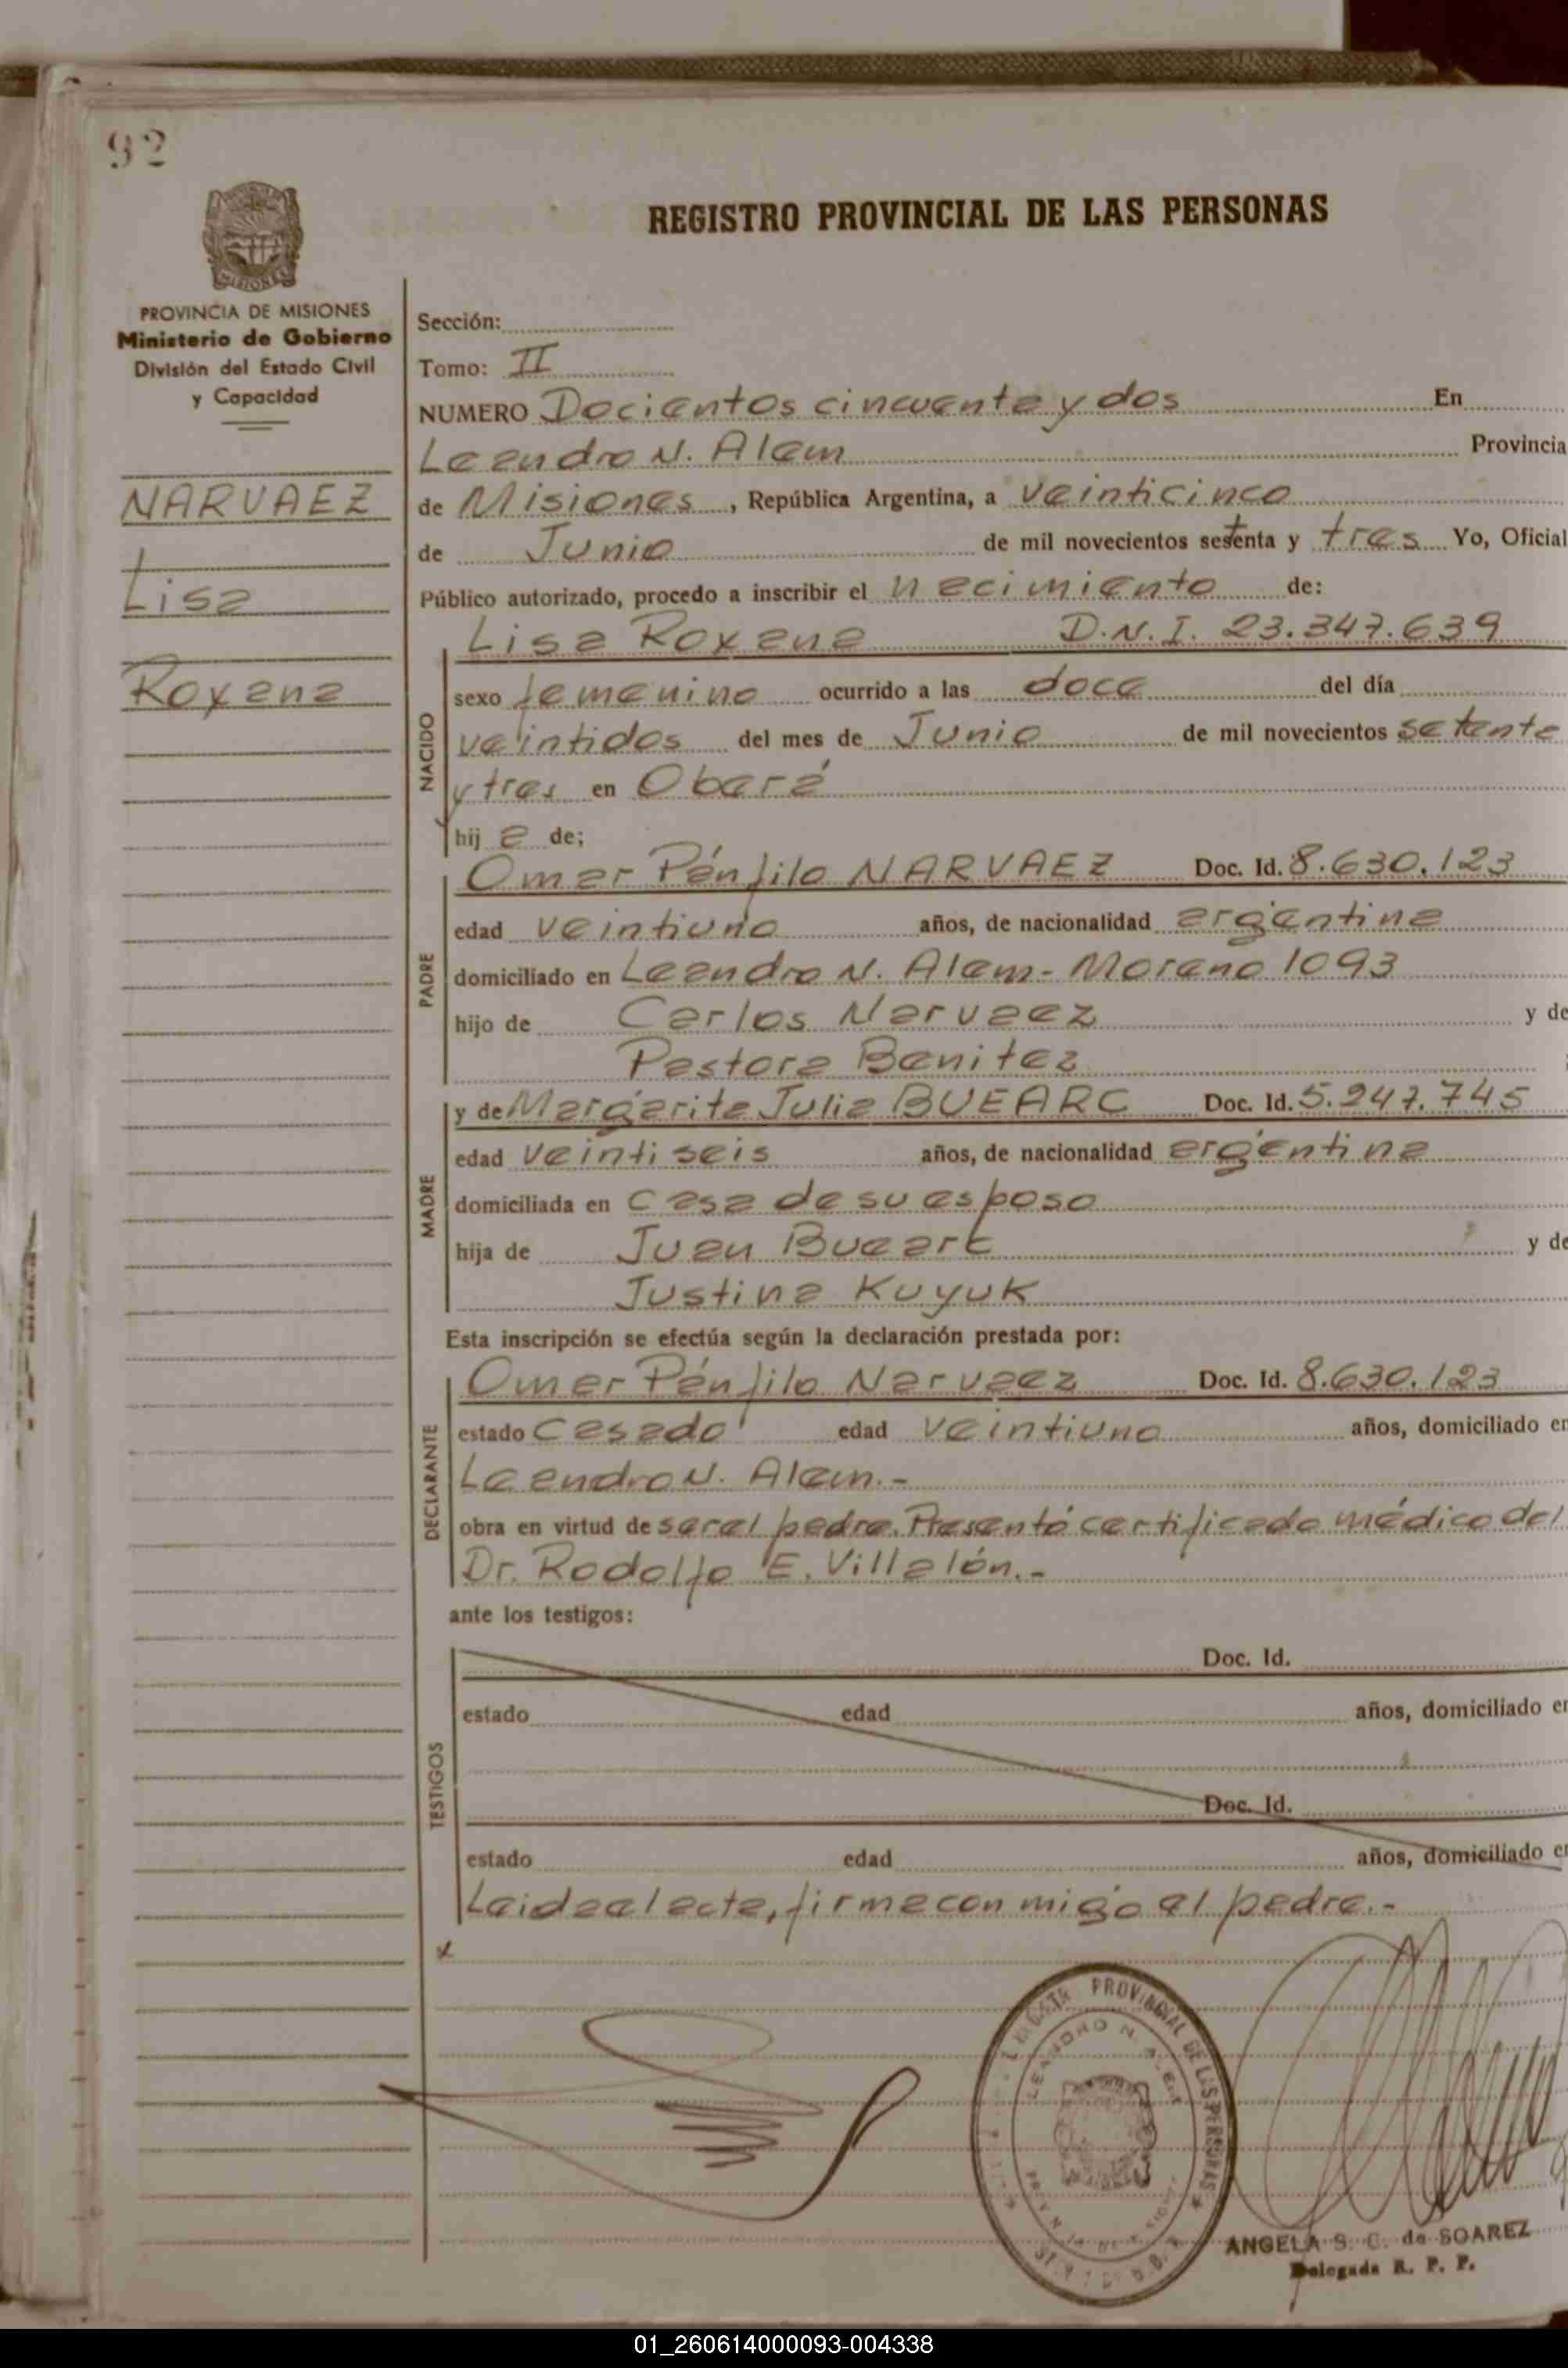 92
REGISTRO PROVINCIAL DE LAS PERSONAS
MISIONES
PROVINCIA DE MISIONES
Ministerio de Gobierno
División del Estado Civil
y Capacidad
NARVAEZ
Lisa
Roxana
Sección:
Tomo: II
NUMERO Docientos cincuenta y dos En
Leandro N. Alem Provincia
de Misiones, República Argentina, a veinticinco
de Junio de mil novecientos setenta y tres Yo, Oficial
Público autorizado, procedo a inscribir el nacimiento de:
Lisa Roxana D.N.I. 23.347.639
NACIDO
sexo femenino ocurrido a las doce del día
veintidos del mes de Junio de mil novecientos setenta
y tres en Oberá
hij a de;
PADRE
Omar Pánfilo NARVAEZ Doc. Id. 8.630.123
edad veintiuno años, de nacionalidad argentina
domiciliado en Leandro N. Alem - Moreno 1093
hijo de Carlos Narvaez y de
Pastora Benitez
MADRE
y de Margarita Julia BUEARC Doc. Id. 5.247.745
edad veintiseis años, de nacionalidad argentina
domiciliada en casa de su esposo
hija de Juan Buearc y de
Justina Kuyuk
Esta inscripción se efectúa según la declaración prestada por:
DECLARANTE
Omar Pánfilo Narvaez Doc. Id. 8.630.123
estado casado edad veintiuno años, domiciliado en
Leandro N. Alem.-
obra en virtud de ser el padre. Presentó certificado médico del
Dr. Rodolfo E. Villalón.-
ante los testigos:
TESTIGOS
Doc. Id.
estado edad años, domiciliado en
Doc. Id.
estado edad años, domiciliado en
Leida el acta, firma con migo el padre.-
x
PROVINCIAL DE LAS PERSONAS
LEANDRO N. ALEM
ANGELA S. C. de SOAREZ
Delegada R. P. P.
01_260614000093-004338